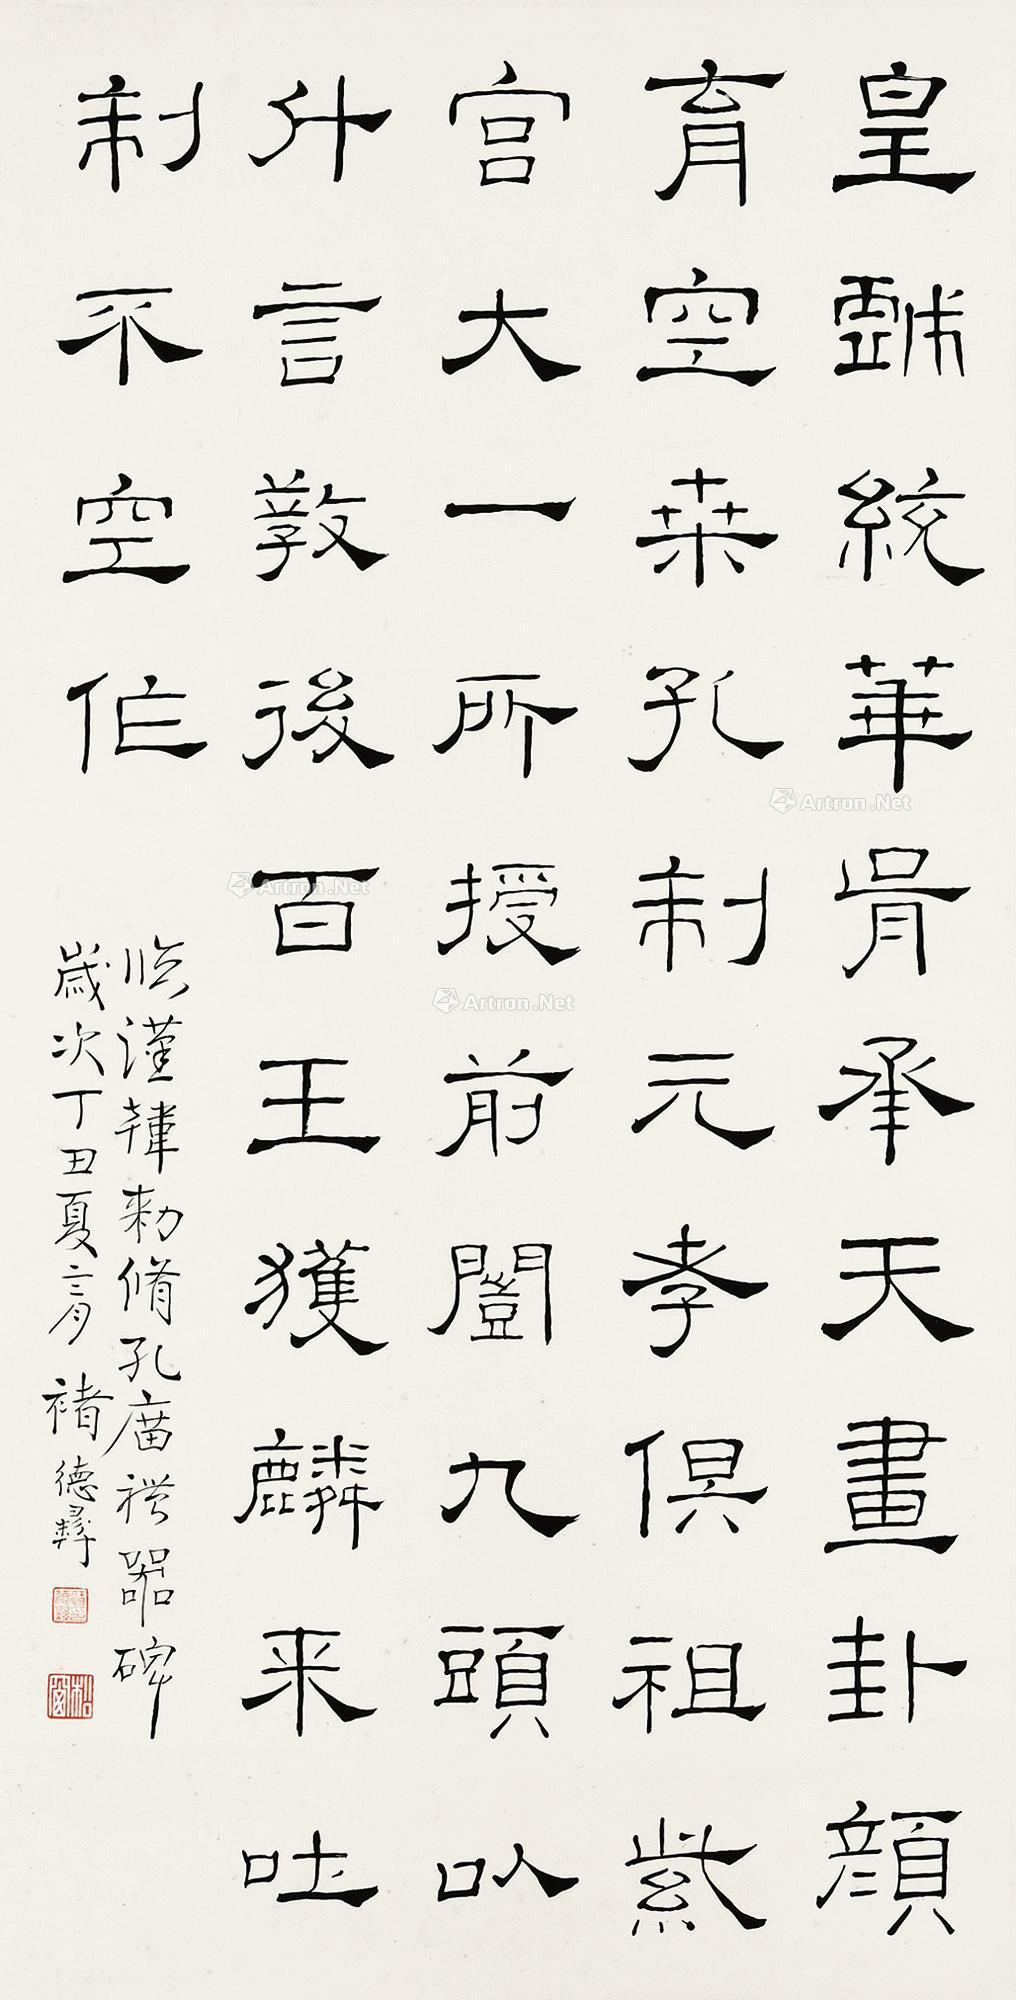 皇戲統華胥承天畫卦顏
育空桒孔制元孝俱祖紫
宮大一所授前闓九頭以
什言敎後百王獲麟来吐
制不空作
臨漢韓勅脩孔廟禮器碑
歲次丁丑夏六月 褚德彝
Artron.Net
Artron.Net
Artron.Net